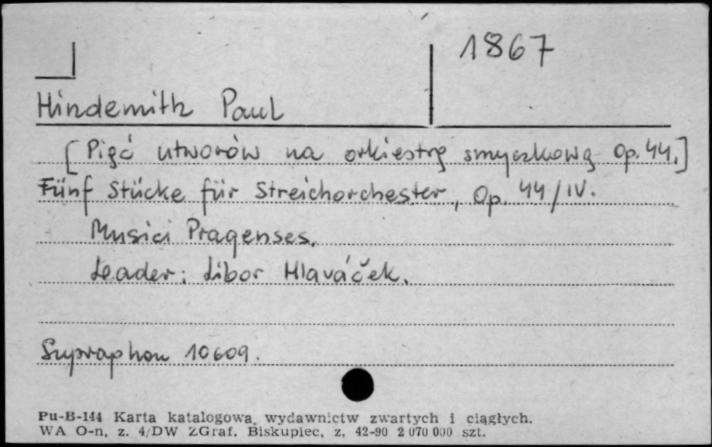 1867
Hindemith Paul
[Pięć utworów na orkiestrę smyczkową Op. 44.]
Fünf Stücke für Streichorchester, Op. 44/IV.
Musici Pragenses.
Leader: Libor Hlaváček.
Supraphon 10609.
Pu-B-144 Karta katalogowa wydawnictw zwartych i ciągłych.
WA O-n, z. 4/DW ZGraf. Biskupiec, z. 42-90 2 070 000 szt.